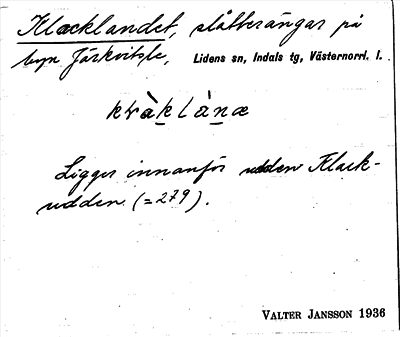 Klacklandet, slåtterängar på
byn Järkvitsle, Lidens sn, Indals tg, Västernorrl. l.
kràklànæ
Ligger innanför udden Klack-
udden (=279).
VALTER JANSSON 1936